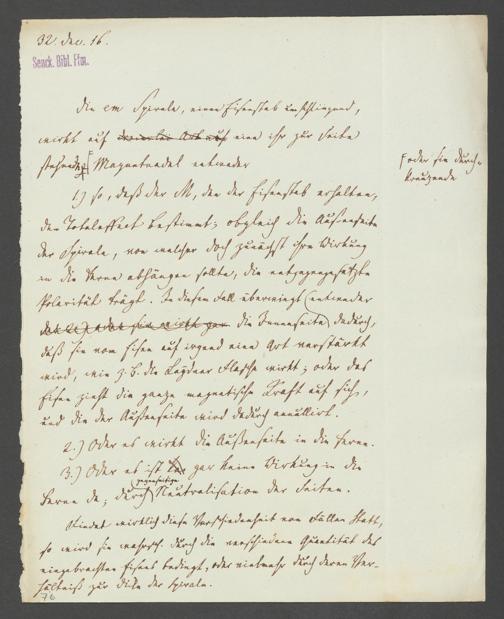 32. Dec. 16.
Senck. Bibl. Ffm.
Die em Spirale, einen Eisenstab umschlingend,
wirkt auf eine ihr zur Seite
stehende Magnetnadel entweder
oder sie durch-
kreuzende
1.) so, daß der M, den der Eisenstab erhalten,
den Totaleffect bestimmt; obgleich die Außenseite
der Spirale, von welcher doch zunächst ihre Wirkung
in die Ferne abhängen sollte, die entgegengesetzte
Polarität trägt. In diesem Fall überwiegt entweder
die Innenseite dadurch,
daß sie vom Eisen auf irgend eine Art verstärkt
wird, wie z. B. die Leydner Flasche wirkt; oder das
Eisen zieht die ganze magnetische Kraft auf sich,
und die der Außenseite wird dadurch annullirt.
2.) Oder es wirkt die Außenseite in die Ferne.
3.) Oder es ist gar keine Wirkung in die
gegenseitige
Ferne da; durch Neutralisation der Seiten.
Findet wirklich diese Verschiedenheit von Fällen Statt,
so wird sie wahrsch. durch die verschiedene Quantität des
eingebrachten Eisens bedingt; oder vielmehr durch deren Ver-
hältniß zur Dicke der Spirale.
76